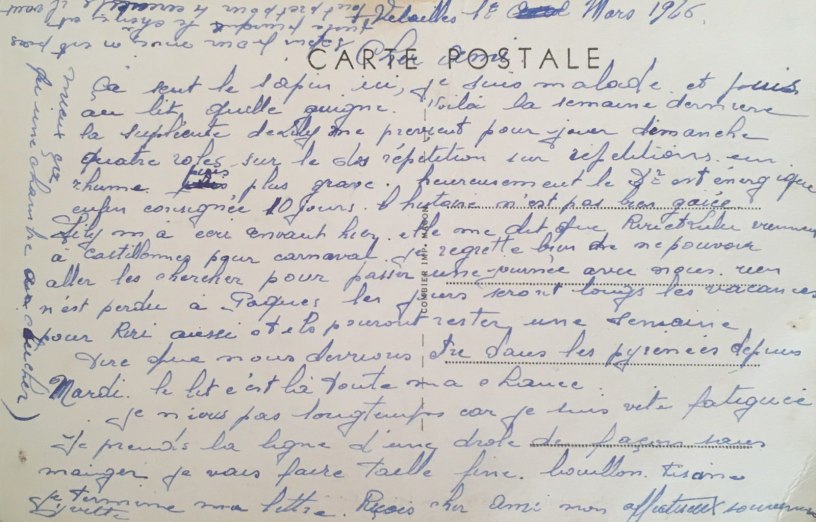 Mars 1926.
Cher ami
CARTE POSTALE
Ca sent le sapin ici, je suis malade et puis
au lit, quelle guigne. Voilà la semaine derniere
la me previent pour jouer dimanche
quatre roles sur le dos répétition sur répétitions. un
rhume puis plus grave. heureusement le Dr est énergique
enfin consignée 10 jours. l'histoire n'est pas bien gaiée
Lily m'a ecri avant hier. elle me dit que Riri et Lulu viennent
à Castillonnes pour carnaval. je regrette bien de ne pouvoir
aller les chercher pour passer une journée avec nous. rien
n'est perdu à Paques les jours seront longs les vacances
pour Riri aussi et ils pourront rester une semaine
Dire que nous devrions être dans les pyrenées depuis
Mardi. le lit c'est là toute ma chance
je n'ecris pas longtemps car je suis vite fatiguée
Je prends la ligne d'une drole de façons sans
manger je vais faire taille fine. bouillon. tisane
je termine ma lettre. Reçois cher Ami mon affectueux souvenir
COMBIER IMP. MACON
mieux que
une chambre à coucher)